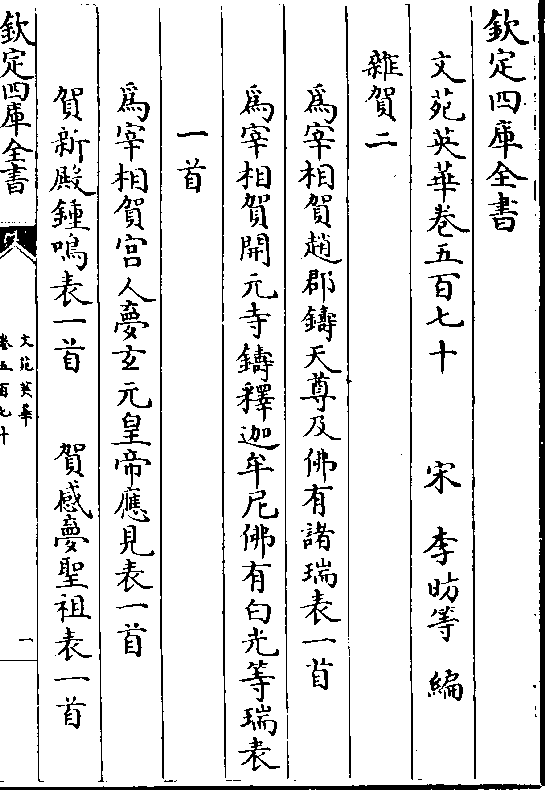 欽定四庫全書
文苑英華卷五百七十 宋 李昉等 編
雜賀二
爲宰相賀趙郡鑄天尊及佛有諸瑞表一首
爲宰相賀開元寺鑄釋迦牟尼佛有白光等瑞表
一首
爲宰相賀宫人夢玄元皇帝應見表一首
賀新殿鍾鳴表一首 賀感夢聖祖表一首
欽定四庫全書
文苑英華
卷五百七十
一